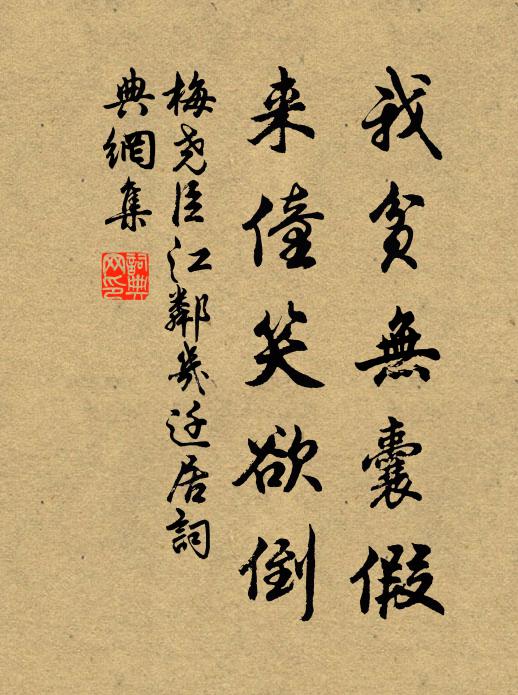 我貧無囊假
来僮笑欲倒
梅尧臣江鄰幾迁居詞
典網集
詞典
网印